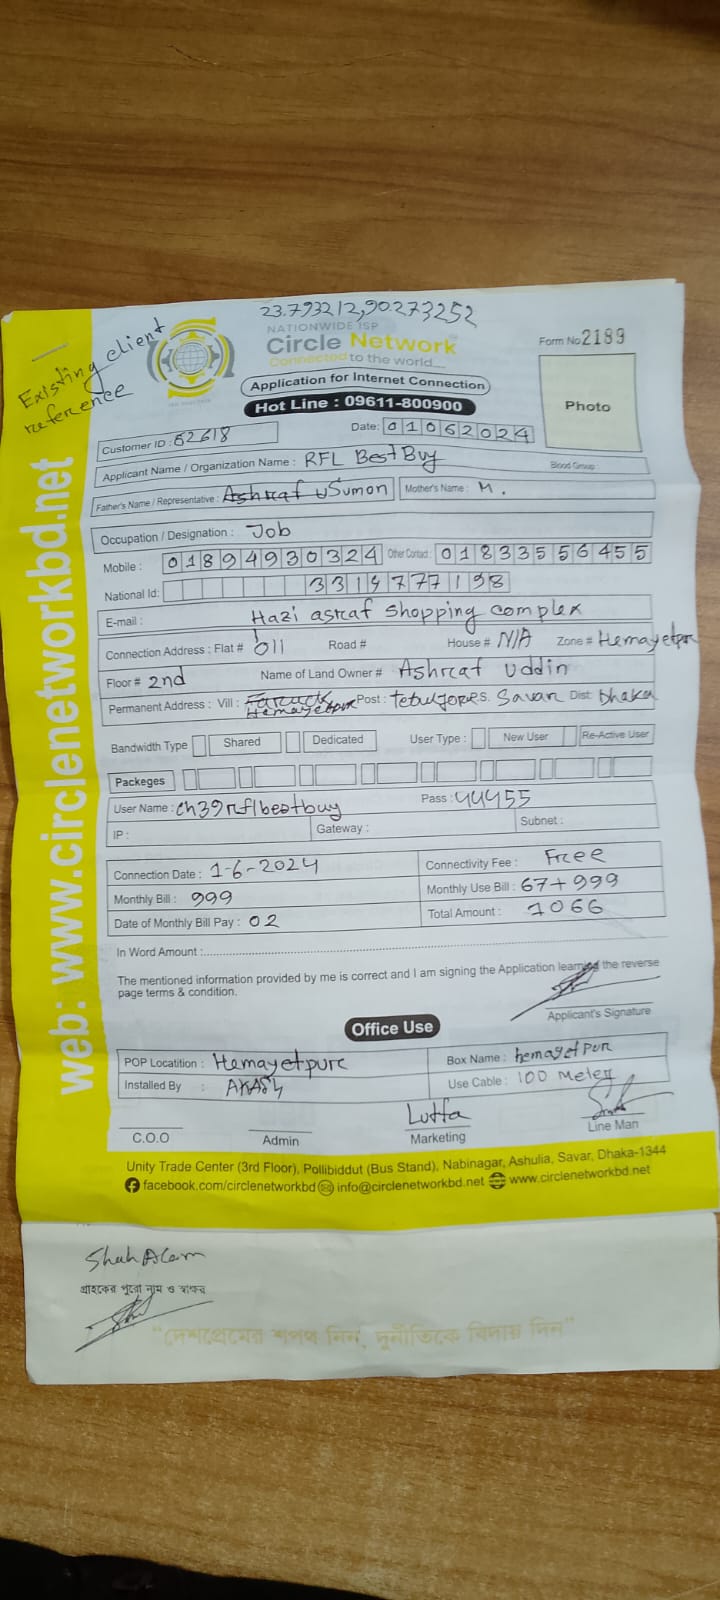 23.793212,90.273252
Existing client
reference
NATIONWIDE ISP
Circle Network
Connected to the world....
Form No 2189
Application for Internet Connection
Photo
Hot Line : 09611-800900
Customer ID : 52618
Date: 01062024
Applicant Name / Organization Name : RFL Best Buy
Blood Group
Father's Name / Representative : Ashraf Sumon Mother's Name : M.
Occupation / Designation : Job
Mobile : 01894930324 Other Contact : 01833556455
National Id:
E-mail : Hazi asraf shopping complex
Connection Address : Flat # 011 Road # House # N/A Zone # Hemayetpur
Floor # 2nd Name of Land Owner # Ashraf Uddin
Permanent Address : Vill : Hemayetpur Post : P.S. Savar Dist: Dhaka
Bandwidth Type Shared Dedicated User Type : New User Re-Active User
Packeges
User Name : ch39rflbestbuy Pass : 44455
IP : Gateway : Subnet :
Connection Date : 1-6-2024 Connectivity Fee : Free
Monthly Bill : 999 Monthly Use Bill : 67+999
Date of Monthly Bill Pay : 02 Total Amount : 1066
In Word Amount :
The mentioned information provided by me is correct and I am signing the Application learning the reverse
page terms & condition.
Applicant's Signature
Office Use
POP Locatition : Hemayetpure Box Name : hemayetpur
Installed By : AKASH Use Cable : 100 Meter
Lutfa
C.O.O Admin Marketing Line Man
Unity Trade Center (3rd Floor), Pollibiddut (Bus Stand), Nabinagar, Ashulia, Savar, Dhaka-1344
facebook.com/circlenetworkbd info@circlenetworkbd.net www.circlenetworkbd.net
web: www.circlenetworkbd.net
Shah Alam
গ্রাহকের পুরো নাম ও স্বাক্ষর
"দেশপ্রেমের শপথ নিন, দুর্নীতিকে বিদায় দিন"